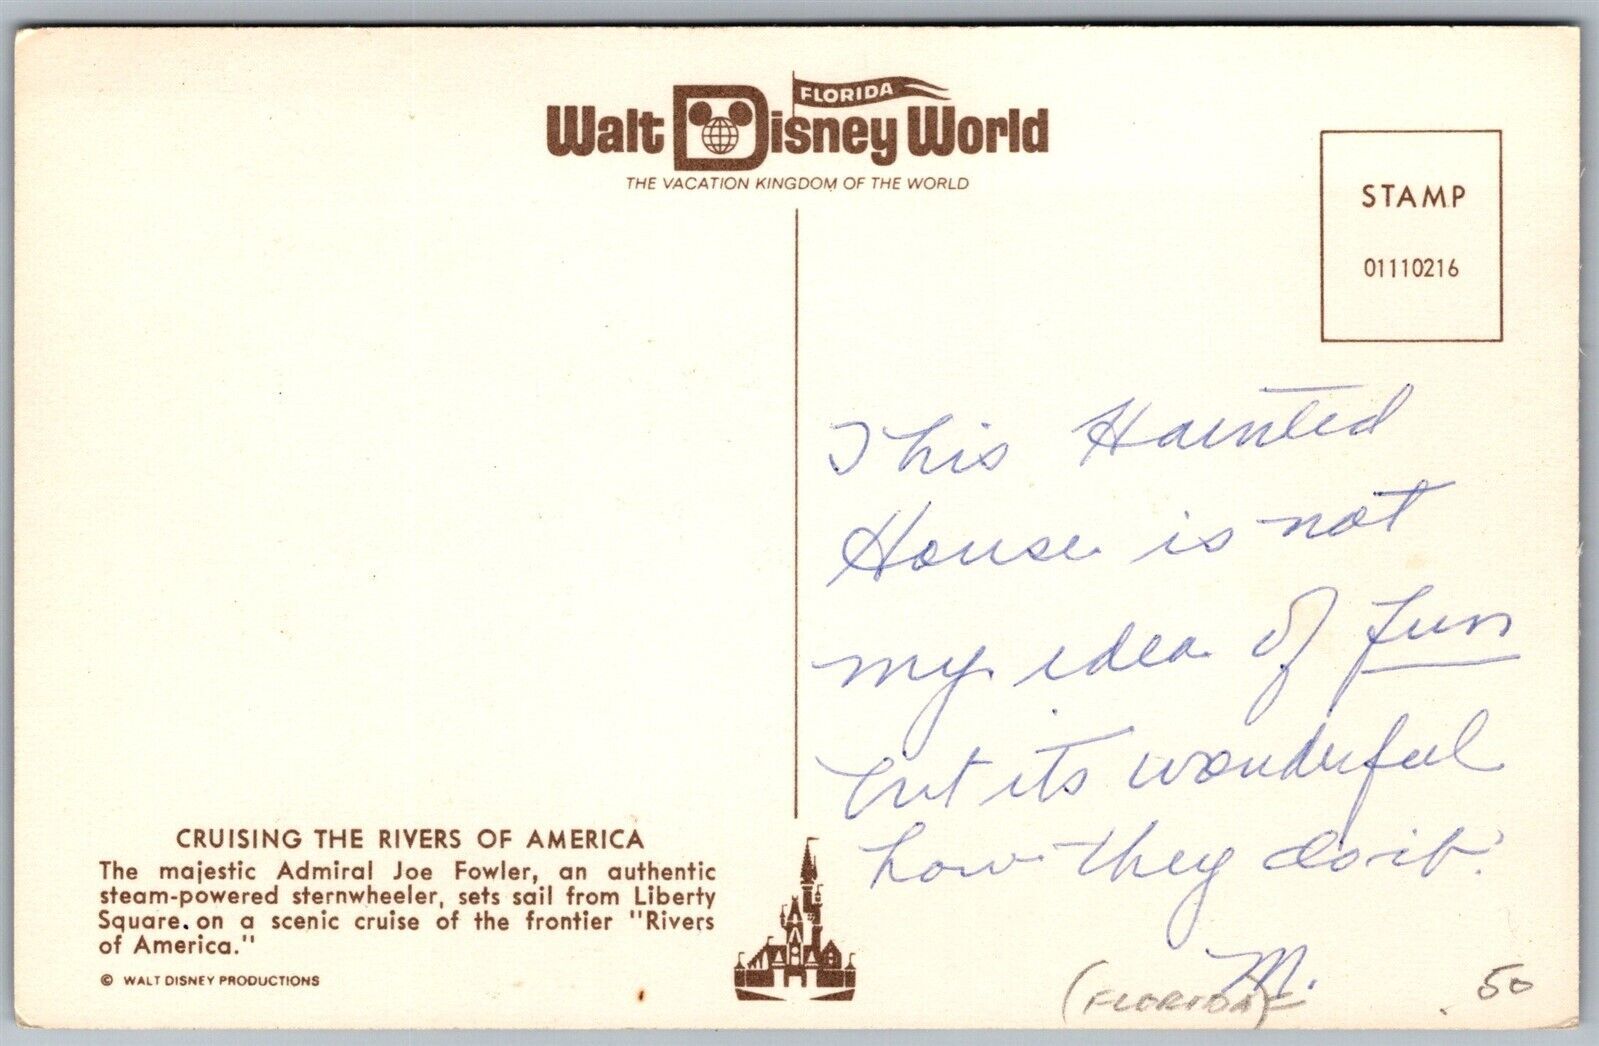 FLORIDA
Walt Disney World
THE VACATION KINGDOM OF THE WORLD
STAMP
01110216
This Haunted
House is not
my idea of fun
but its wonderful
how they do it.
M.
(FLORIDA)
.50
CRUISING THE RIVERS OF AMERICA
The majestic Admiral Joe Fowler, an authentic
steam-powered sternwheeler, sets sail from Liberty
Square on a scenic cruise of the frontier "Rivers
of America."
© WALT DISNEY PRODUCTIONS